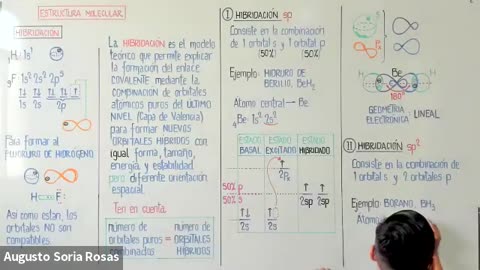 ESTRUCTURA MOLECULAR
HIBRIDACIÓN
₁H: 1s¹
₉F: 1s² 2s² 2p⁵
1s 2s 2p
Para formar al
FLUORURO DE HIDRÓGENO
H F
Así como están, los
orbitales NO son
compatibles.
La HIBRIDACIÓN es el modelo
teórico que permite explicar
la formación del enlace
COVALENTE mediante la
COMBINACIÓN de orbitales
atómicos puros del ÚLTIMO
NIVEL (Capa de Valencia)
para formar NUEVOS
ORBITALES HÍBRIDOS con
igual forma, tamaño,
energía y estabilidad
pero diferente orientación
espacial.
Ten en cuenta:
número de orbitales puros combinados = número de ORBITALES HÍBRIDOS
I HIBRIDACIÓN sp
Consiste en la combinación
de 1 orbital s y 1 orbital p
50% 50%
Ejemplo: HIDRURO DE
BERILIO, BeH₂
Atomo central → Be
₄Be: 1s² 2s²
ESTADO BASAL
ESTADO EXCITADO
ESTADO HIBRIDADO
2Px
50% p
50% s
2s 2s 2sp 2sp
H Be H
180°
GEOMETRÍA
ELECTRÓNICA: LINEAL
II HIBRIDACIÓN sp²
Consiste en la combinación de
1 orbital s y 2 orbitales p
Ejemplo: BORANO, BH₃
Atomo
Augusto Soria Rosas